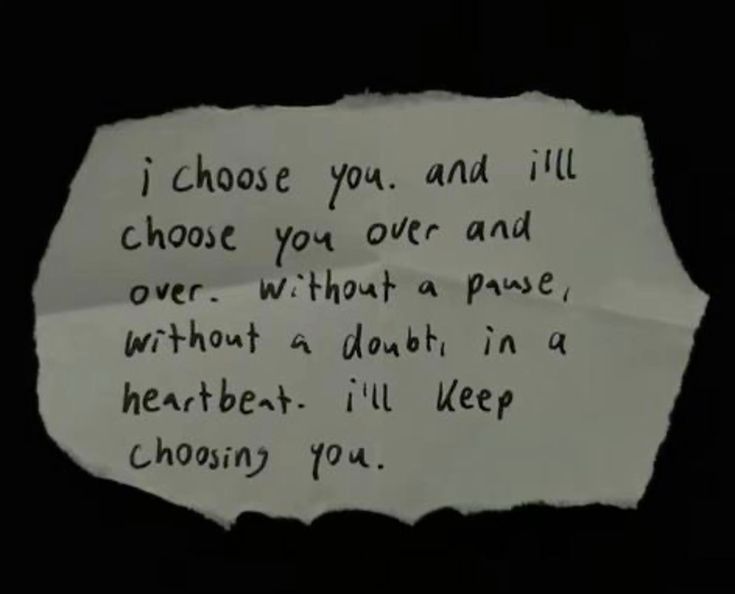 i choose you. and i'll
choose you over and
over. without a pause,
without a doubt, in a
heartbeat. i'll keep
choosing you.